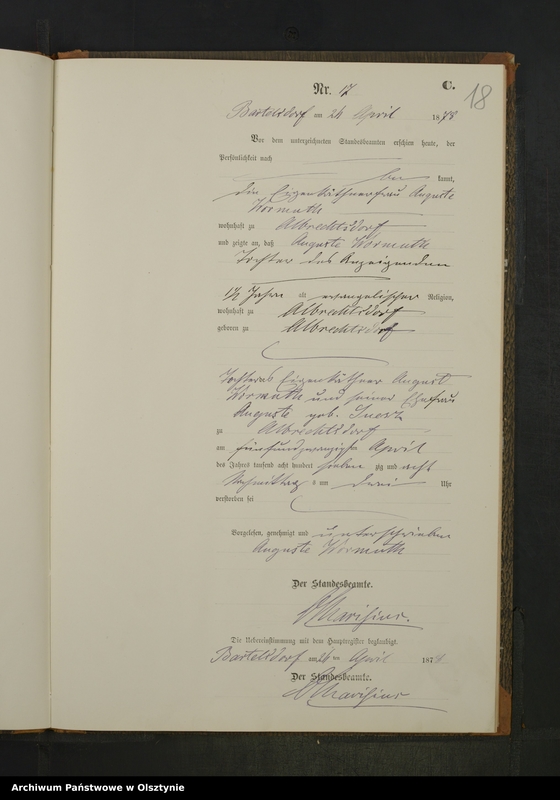 Nr. 17
C.
18
Bartelsdorf am 26 April 1878
Vor dem unterzeichneten Standesbeamten erschien heute, der
Persönlichkeit nach
bekannt,
die Eigenkäthnerfrau Auguste
Wormuth
wohnhaft zu Albrechtsdorf
und zeigte an, daß Auguste Wormuth
Tochter des Anzeigenden
1½ Jahre alt evangelischer Religion,
wohnhaft zu Albrechtsdorf
geboren zu Albrechtsdorf
Tochter des Eigenkäthner August
Wormuth und seiner Ehefrau
Auguste geb.
zu Albrechtsdorf
am fünfundzwanzigsten April
des Jahres tausend acht hundert sieben zig und acht
Nachmittag s um drei Uhr
verstorben sei
Vorgelesen, genehmigt und unterschrieben
Auguste Wormuth
Der Standesbeamte.
Die Uebereinstimmung mit dem Hauptregister beglaubigt.
Bartelsdorf am 26 ten April 1878
Der Standesbeamte.
Archiwum Państwowe w Olsztynie